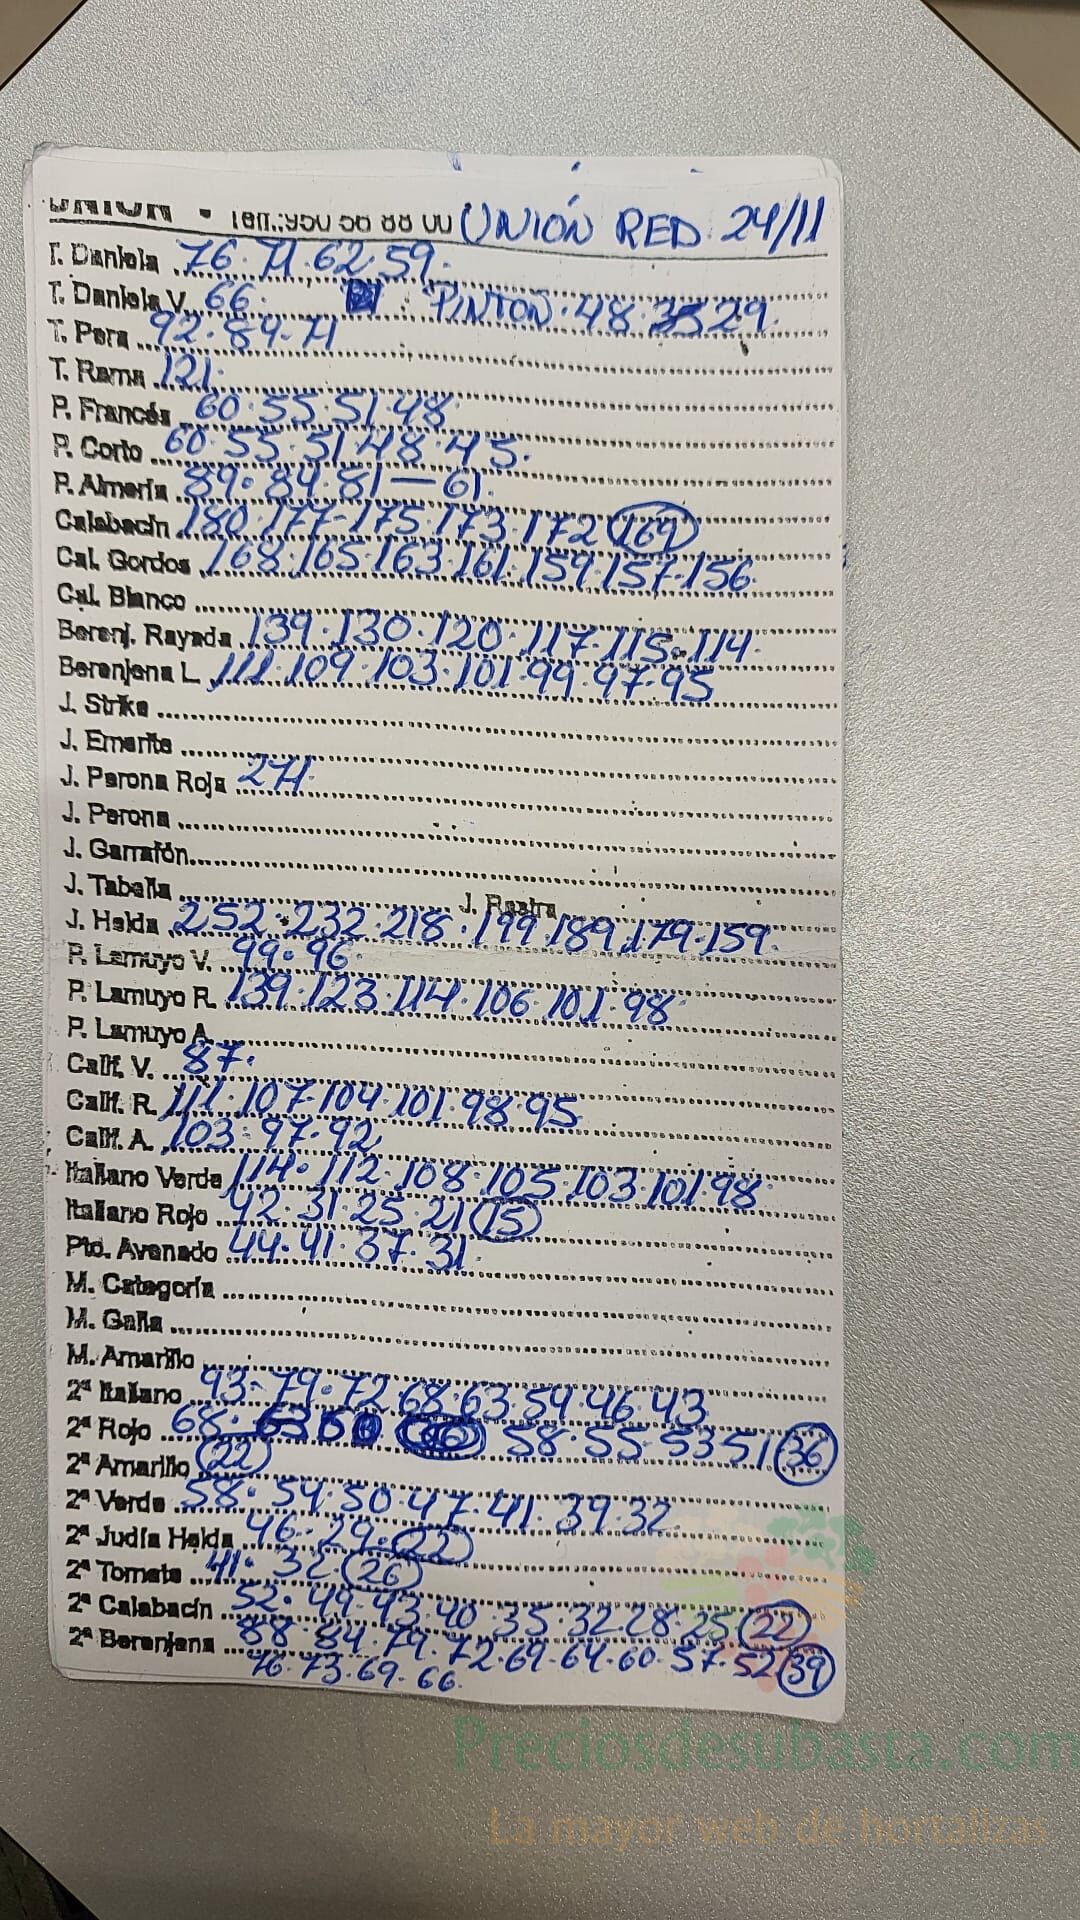 UNION • Telf.:950 56 88 00 UNIÓN RED. 24/11
T. Daniela 76·71·62·59·
T. Daniela V. 66· PINTON·48·35 29·
T. Pera 92·84·71
T. Rama 121·
P. Francés 60·55·51·48
P. Corto 60·55·51·48·45·
P. Almería 89·84·81—61·
Calabacín 180·177·175·173·172 169
Cal. Gordos 168·165·163·161·159·157·156
Cal. Blanco
Berenj. Rayada 139·130·120·117·115·114·
Berenjena L. 111·109·103·101·99·97·95
J. Strike
J. Emerite
J. Perona Roja 271·
J. Perona
J. Garrafón
J. Tabella J. Rastra
J. Helda 252·232·218·199·189·179·159·
P. Lamuyo V. 99·96·
P. Lamuyo R. 139·123·114·106·101·98
P. Lamuyo A.
Calif. V. 87·
Calif. R. 111·107·104·101·98·95
Calif. A. 103·97·92
Italiano Verde 114·112·108·105·103·101·98
Italiano Rojo 42·31·25·21 15
Pto. Avenado 44·41·37·31
M. Categoría
M. Galia
M. Amarillo
2ª Italiano 93·79·72·68·63·54·46·43
2ª Rojo 68· 58·55·53 51 36
2ª Amarillo 22
2ª Verde 58·54·50·47·41·39·32
2ª Judía Helda 46·29·22
2ª Tomate 41·32·26
2ª Calabacín 52·49·43·40·35·32·28·25·22
2ª Berenjena 88·84·79·72·69·64·60·57·52 39
76·73·69·66·
Preciosdesubasta.com
La mayor web de hortalizas